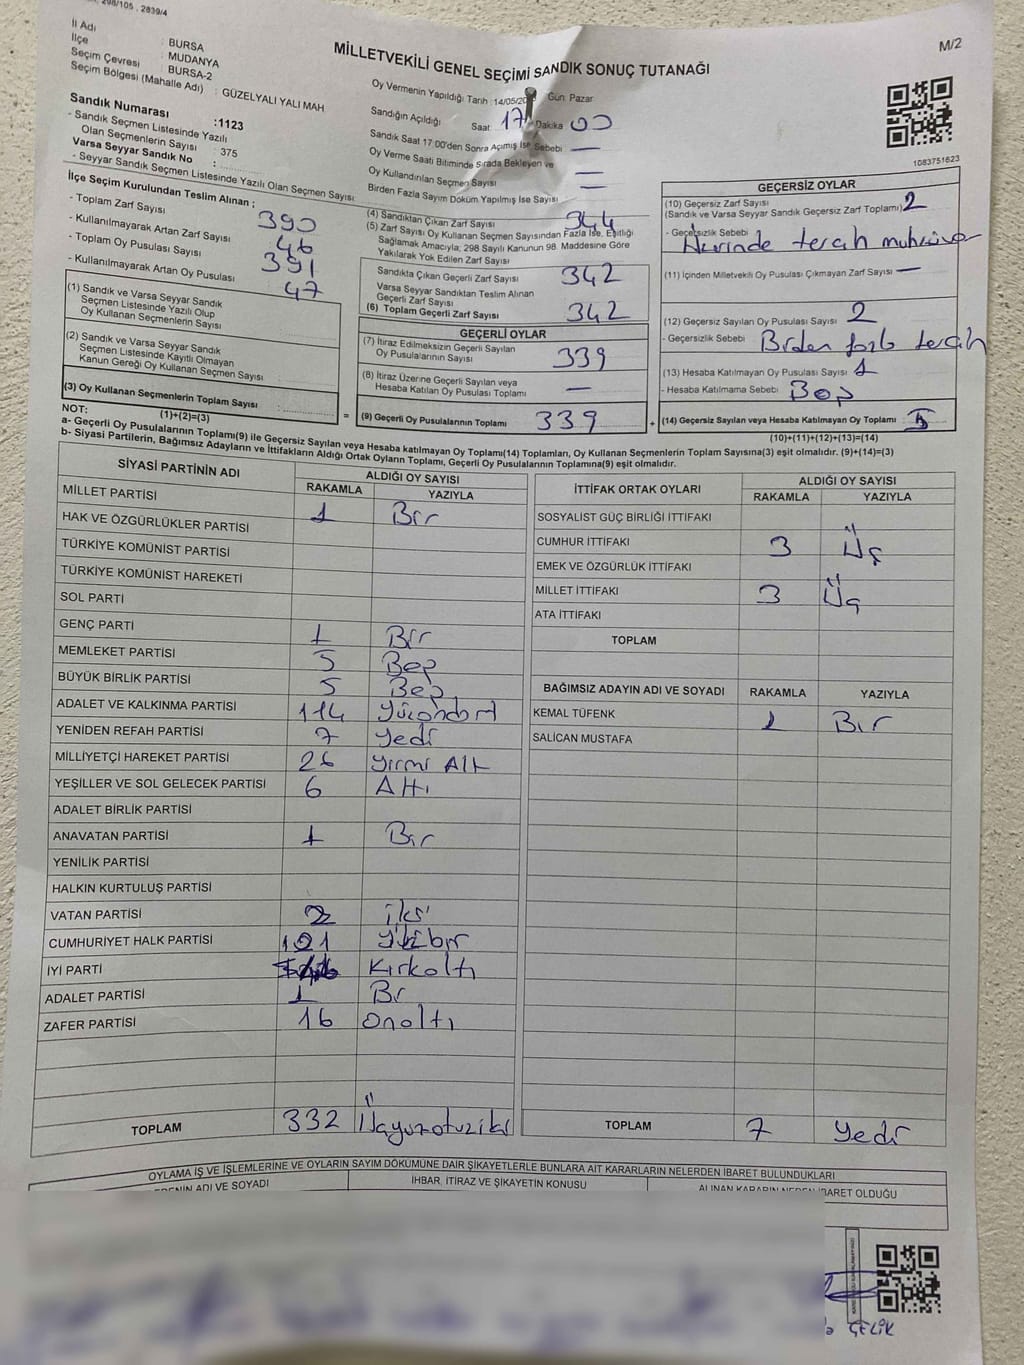 298/105 , 2839/4
İl Adı : BURSA
İlçe : MUDANYA
Seçim Çevresi : BURSA-2
Seçim Bölgesi (Mahalle Adı) : GÜZELYALI YALI MAH
MİLLETVEKİLİ GENEL SEÇİMİ SANDIK SONUÇ TUTANAĞI
M/2
Oy Vermenin Yapıldığı Tarih : 14/05/20 Gün Pazar
Sandığın Açıldığı Saat 17 Dakika 00
Sandık Saat 17:00'den Sonra Açımış İse Sebebi —
Oy Verme Saati Bitiminde Sırada Bekleyen ve
Oy Kullandırılan Seçmen Sayısı —
Birden Fazla Sayım Döküm Yapılmış İse Sayısı —
1083751623
Sandık Numarası :1123
- Sandık Seçmen Listesinde Yazılı
Olan Seçmenlerin Sayısı : 375
Varsa Seyyar Sandık No :
- Seyyar Sandık Seçmen Listesinde Yazılı Olan Seçmen Sayısı
İlçe Seçim Kurulundan Teslim Alınan :
- Toplam Zarf Sayısı 390
- Kullanılmayarak Artan Zarf Sayısı 46
- Toplam Oy Pusulası Sayısı 391
- Kullanılmayarak Artan Oy Pusulası 47
(1) Sandık ve Varsa Seyyar Sandık
Seçmen Listesinde Yazılı Olup
Oy Kullanan Seçmenlerin Sayısı
(2) Sandık ve Varsa Seyyar Sandık
Seçmen Listesinde Kayıtlı Olmayan
Kanun Gereği Oy Kullanan Seçmen Sayısı
(3) Oy Kullanan Seçmenlerin Toplam Sayısı :
(1)+(2)=(3)
(4) Sandıktan Çıkan Zarf Sayısı 344
(5) Zarf Sayısı Oy Kullanan Seçmen Sayısından Fazla İse, Eşitliği
Sağlamak Amacıyla; 298 Sayılı Kanunun 98. Maddesine Göre
Yakılarak Yok Edilen Zarf Sayısı
Sandıkta Çıkan Geçerli Zarf Sayısı 342
Varsa Seyyar Sandıktan Teslim Alınan
Geçerli Zarf Sayısı
(6) Toplam Geçerli Zarf Sayısı 342
GEÇERLİ OYLAR
(7) İtiraz Edilmeksizin Geçerli Sayılan
Oy Pusulalarının Sayısı 339
(8) İtiraz Üzerine Geçerli Sayılan veya
Hesaba Katılan Oy Pusulası Toplamı —
= (9) Geçerli Oy Pusulalarının Toplamı 339 +
GEÇERSİZ OYLAR
(10) Geçersiz Zarf Sayısı 2
(Sandık ve Varsa Seyyar Sandık Geçersiz Zarf Toplamı)
- Geçersizlik Sebebi
Üzerinde tercih mührü var
(11) İçinden Milletvekili Oy Pusulası Çıkmayan Zarf Sayısı —
(12) Geçersiz Sayılan Oy Pusulası Sayısı 2
- Geçersizlik Sebebi Birden fazla tercih
(13) Hesaba Katılmayan Oy Pusulası Sayısı 1
- Hesaba Katılmama Sebebi Boş
(14) Geçersiz Sayılan veya Hesaba Katılmayan Oy Toplamı 5
(10)+(11)+(12)+(13)=(14)
NOT:
a- Geçerli Oy Pusulalarının Toplamı(9) ile Geçersiz Sayılan veya Hesaba katılmayan Oy Toplamı(14) Toplamları, Oy Kullanan Seçmenlerin Toplam Sayısına(3) eşit olmalıdır. (9)+(14)=(3)
b- Siyasi Partilerin, Bağımsız Adayların ve İttifakların Aldığı Ortak Oyların Toplamı, Geçerli Oy Pusulalarının Toplamına(9) eşit olmalıdır.
SİYASİ PARTİNİN ADI
ALDIĞI OY SAYISI
RAKAMLA YAZIYLA
MİLLET PARTİSİ
HAK VE ÖZGÜRLÜKLER PARTİSİ 1 Bir
TÜRKİYE KOMÜNİST PARTİSİ
TÜRKİYE KOMÜNİST HAREKETİ
SOL PARTİ
GENÇ PARTİ 1 Bir
MEMLEKET PARTİSİ 5 Beş
BÜYÜK BİRLİK PARTİSİ 5 Beş
ADALET VE KALKINMA PARTİSİ 114 Yüzondört
YENİDEN REFAH PARTİSİ 7 Yedi
MİLLİYETÇİ HAREKET PARTİSİ 26 Yirmi Altı
YEŞİLLER VE SOL GELECEK PARTİSİ 6 Altı
ADALET BİRLİK PARTİSİ
ANAVATAN PARTİSİ 1 Bir
YENİLİK PARTİSİ
HALKIN KURTULUŞ PARTİSİ
VATAN PARTİSİ 2 İki
CUMHURİYET HALK PARTİSİ 101 Yüzbir
İYİ PARTİ 46 Kırkaltı
ADALET PARTİSİ 1 Br
ZAFER PARTİSİ 16 Onaltı
TOPLAM 332 Üçyüzotuziki
İTTİFAK ORTAK OYLARI
ALDIĞI OY SAYISI
RAKAMLA YAZIYLA
SOSYALIST GÜÇ BİRLİĞİ İTTİFAKI
CUMHUR İTTİFAKI 3 Üç
EMEK VE ÖZGÜRLÜK İTTİFAKI
MİLLET İTTİFAKI 3 Üç
ATA İTTİFAKI
TOPLAM
BAĞIMSIZ ADAYIN ADI VE SOYADI RAKAMLA YAZIYLA
KEMAL TÜFENK 1 Bir
SALİCAN MUSTAFA
TOPLAM 7 Yedi
OYLAMA İŞ VE İŞLEMLERİNE VE OYLARIN SAYIM DÖKÜMÜNE DAİR ŞİKAYETLERLE BUNLARA AİT KARARLARIN NELERDEN İBARET BULUNDUKLARI
ADI VE SOYADI
İHBAR, İTİRAZ VE ŞİKAYETİN KONUSU
ALINAN KARARIN NEDEN İBARET OLDUĞU
ÇELİK